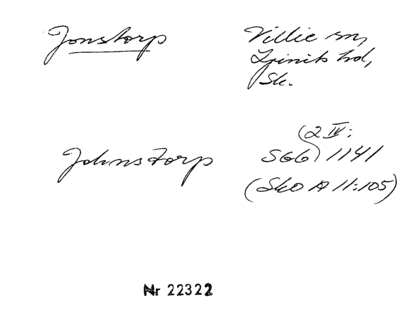 Jonstorp
Villie sn,
Ljunits hd,
Sk.
Johnstorp
(2 IV:
SGG) 1141
(SkO A 11:105)
Nr 22322